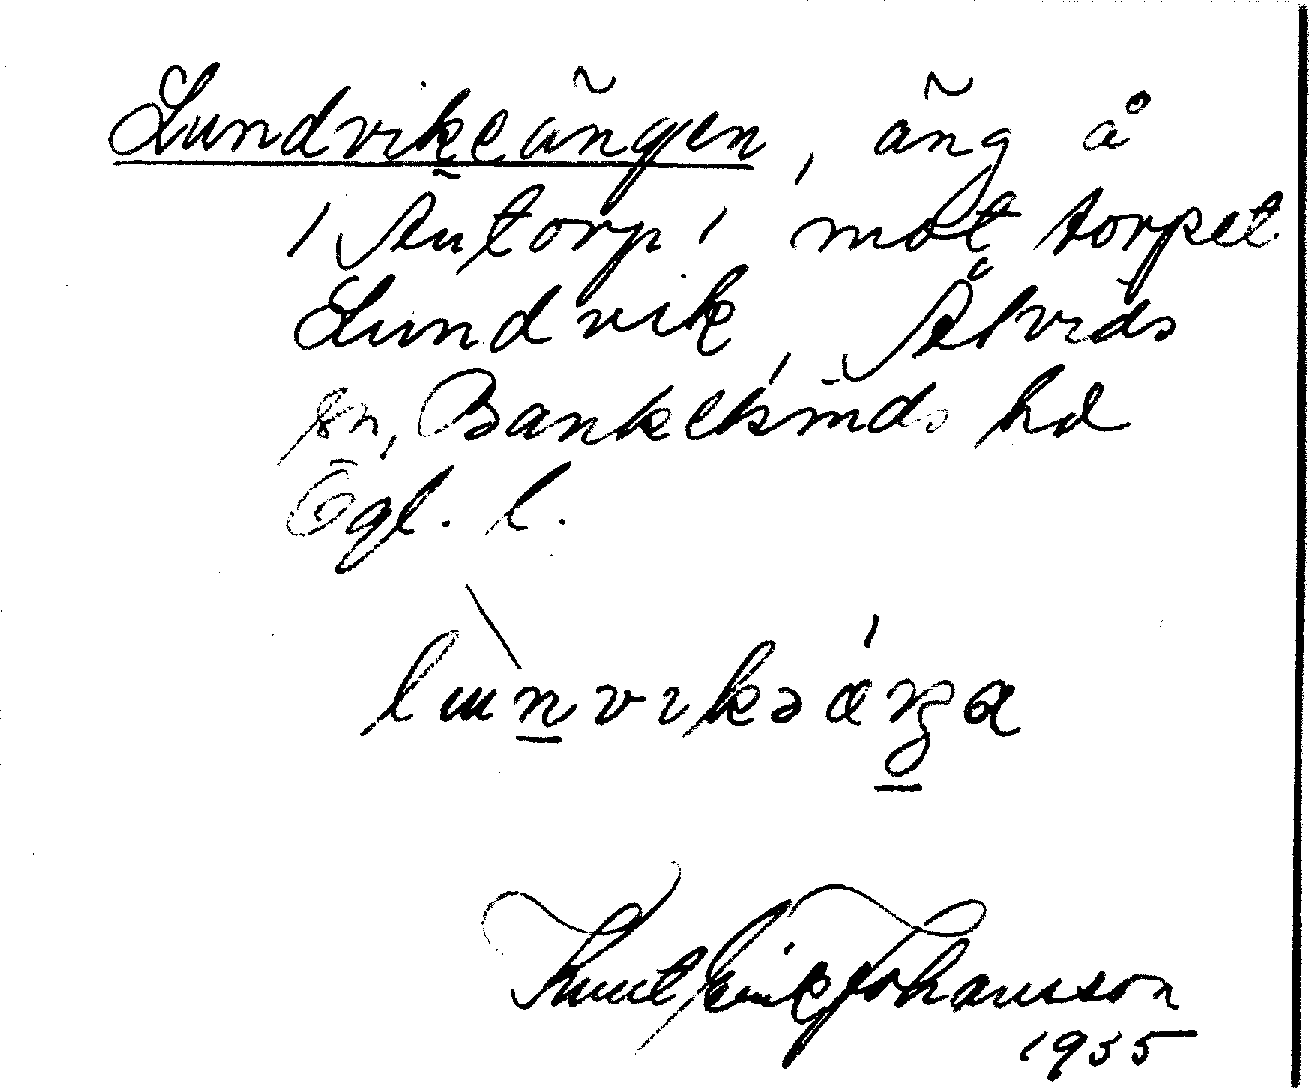 Lundvikeängen, äng å
/Autorp/ mot torpet
Lundvik, Ålvids
sn, Bankekinds hd
Ögl. l.
Knut Erik Johansson
1935